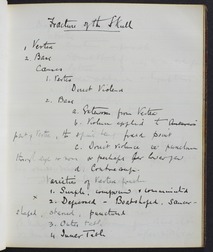 Fracture of the Skull
1. Vertex
2. Base
Causes
1. Vertex
Direct Violence
2. Base
a. Extension from Vertex
b. Violence applied to
part of Vertex, the spine fixed point
c. Direct violence as puncture
through eye or nose or perhaps for lower jaw
d. Contrecoup.
Varieties of Vertex
1. Simple, compound & comminuted
x 2. Depressed - Boatshaped, saucer-
shaped, punctured
3. Outer Table
4. Inner Table